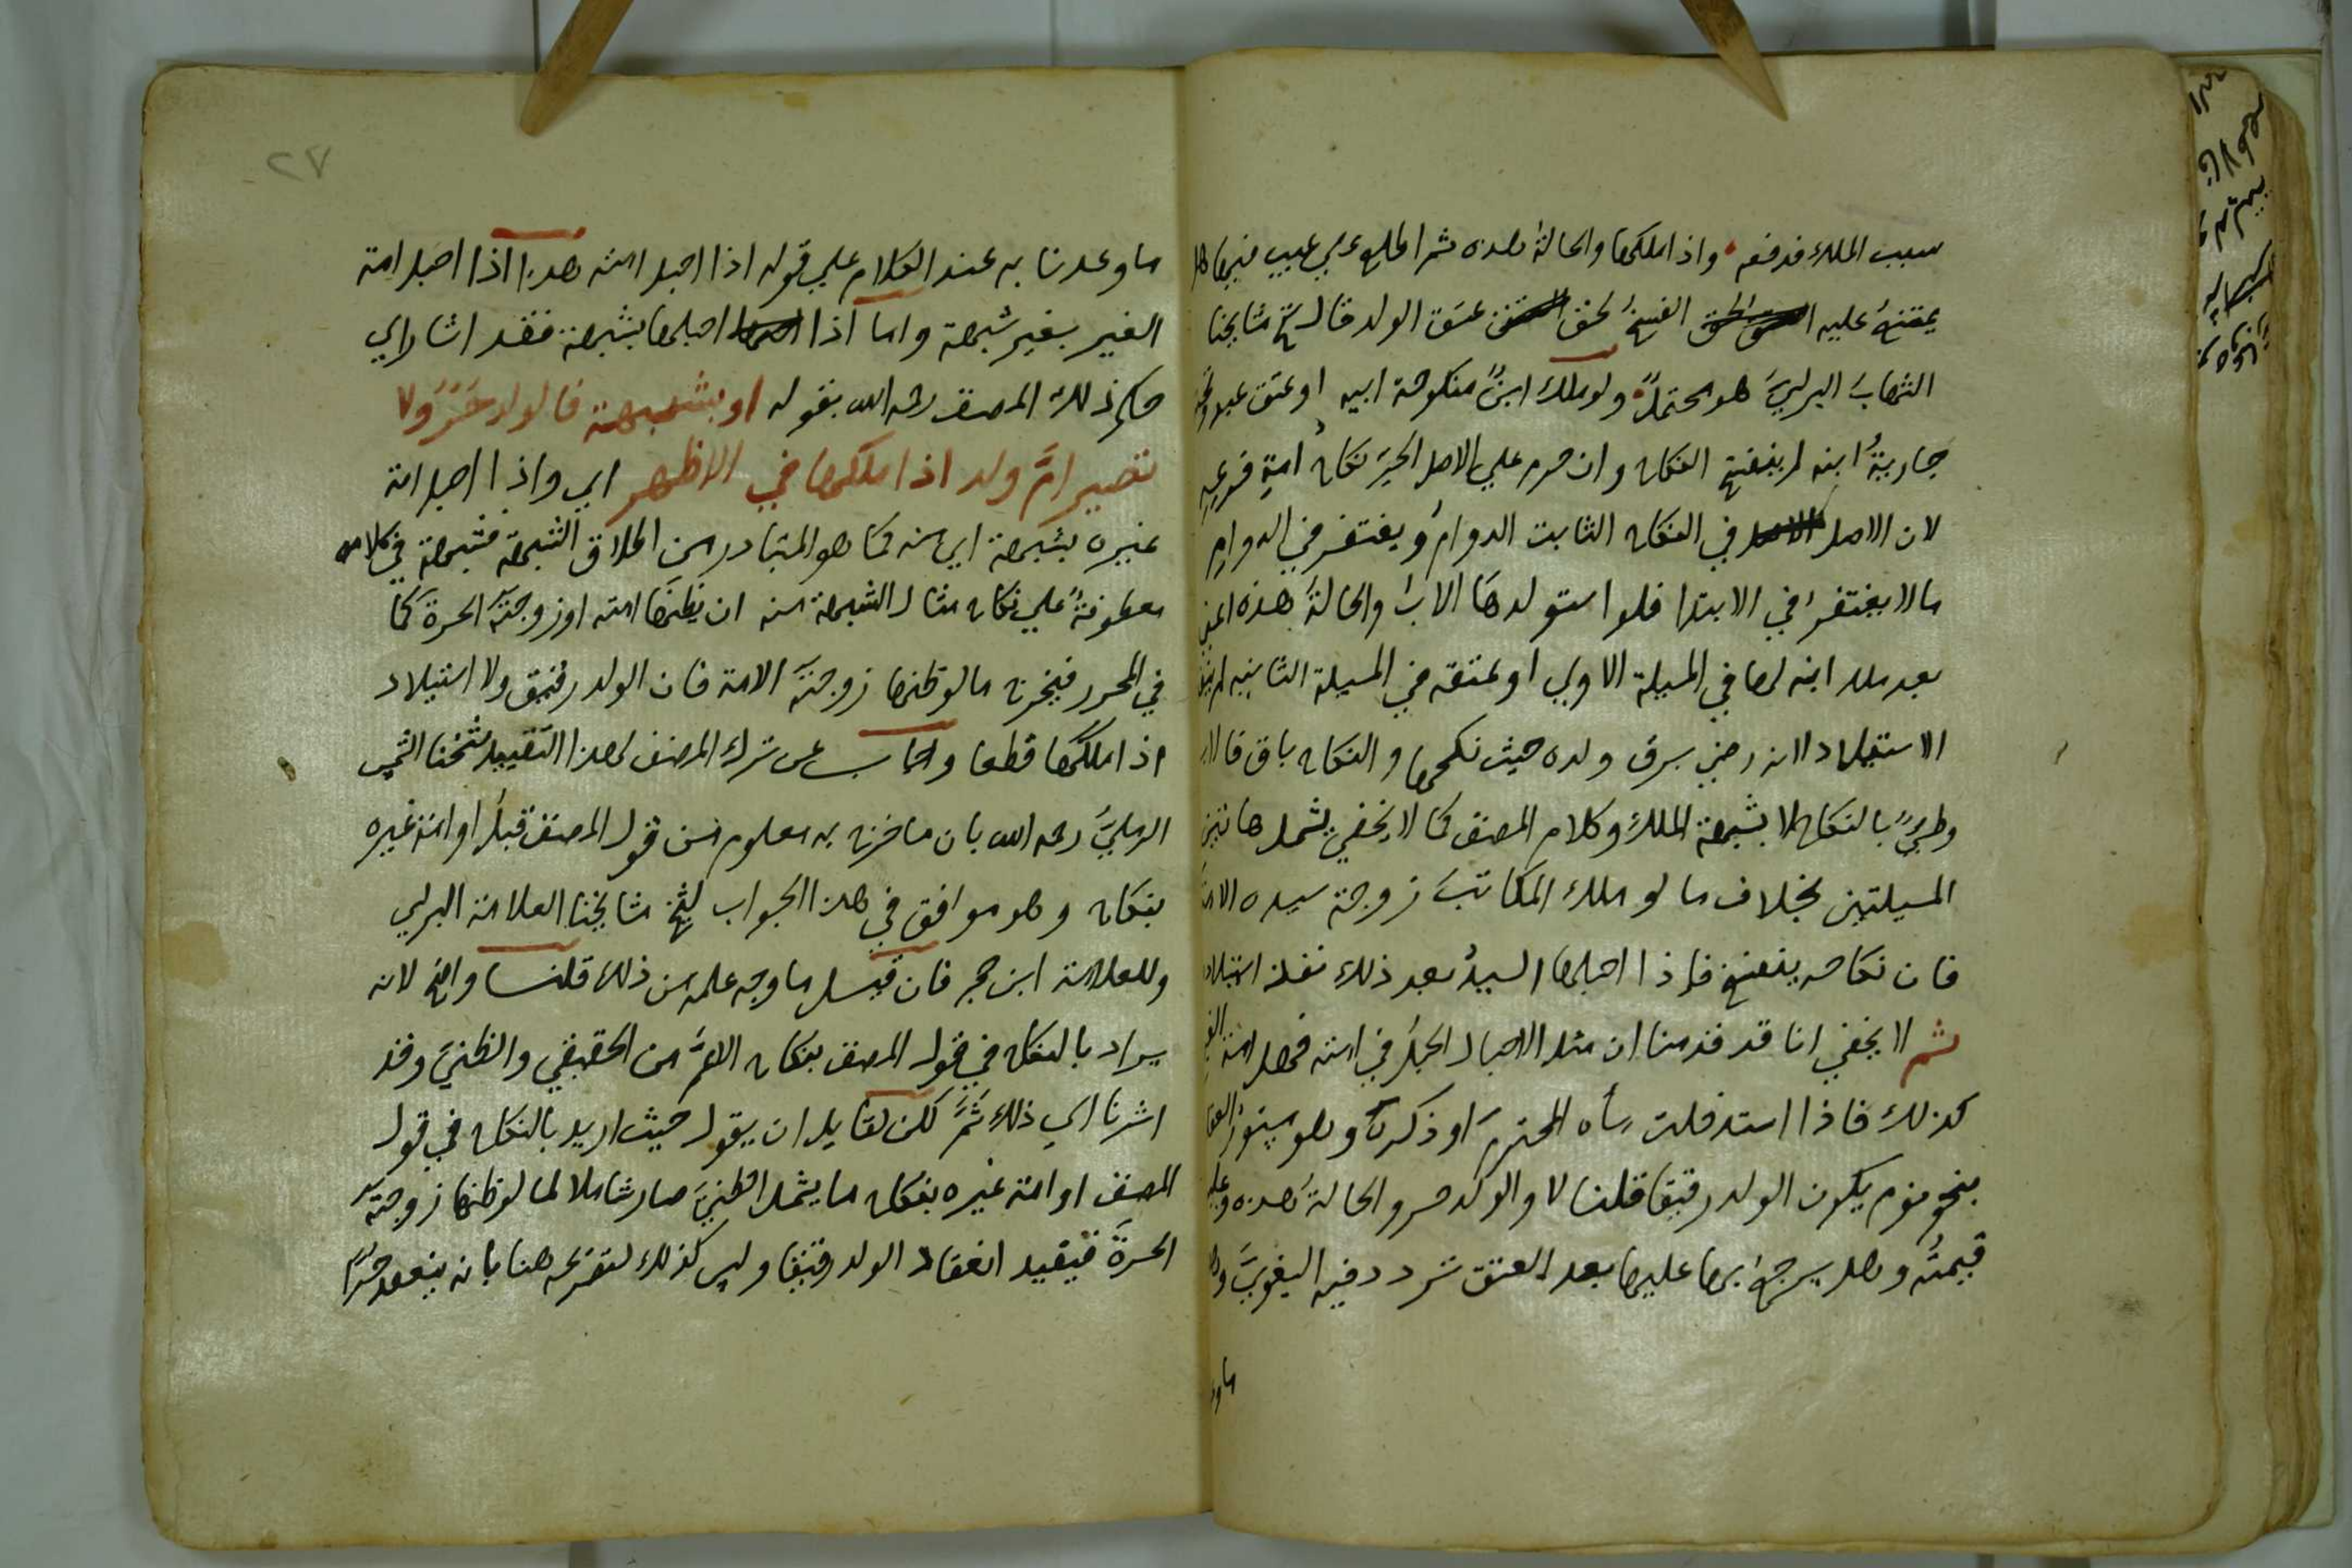 سبب الملك فدفعه واذا ملكها والحالة هذه ثم اطلع علي عيب فيها
يمتنع عليه الفسخ لحق عتق الولد قال شيخ مشايخنا
الشهاب البرلسي هو محتمل ولو ملك ابن منكوحة ابيه او عتق عبد
جارية ابنه لم ينفسخ النكاح وان حرم علي الاصل الحر نكاح امة فرعه
لان الاصل في النكاح الثابت الدوام ويغتفر في الدوام
ما لا يغتفر في الابتدا فلو استولدها الاب والحالة هذه
بعد ملك ابنه لها في المسيلة الاولي او عتقه في المسيلة الثانيه لم
الاستيلاد لانه رضي برق ولده حيث نكحها والنكاح باق
وطي بالنكاح لا بشبهة الملك وكلام المصنف كما لا يخفي يشمل هاتين
المسيلتين بخلاف ما لو ملك المكاتب زوجة سيده
فان نكاحه ينفسخ فاذا احبلها السيد بعد ذلك نفذ
ثم لا يخفي انا قد قدمنا ان مثل الاحبال الحبل في امته فهل امة
كذلك فاذا استدخلت ماه المحترم او ذكره وهو
بنحو نوم يكون الولد رقيقا قلنا لا والولد حر والحالة هذه وعليه
قيمته وهل يرجع بها عليها بعد العتق تردد فيه البغوي
ما و
٢٧
ما وعدنا به عند الكلام علي قوله اذا احبل امته هذا اذا احبل امة
الغير بغير شبهة واما اذا احبلها بشبهة فقد اشار الي
حكم ذلك المصنف رحمه الله بقوله او بشبهة فالولد حر ولا
تصير ام ولد اذا ملكها في الاظهر اي واذا احبل امة
غيره بشبهة اي منه كما هو المتبادر من اطلاق الشبهة فشبهة في كلامه
معطوفة علي نكاح مثال الشبهة منه ان يظنها امته او زوجته الحرة كما
في المحرر فيخرج ما لو ظنها زوجته الامة فان الولد رقيق ولا استيلاد
اذا ملكها قطعا واجاب عن ترك المصنف لهذا التقييد شيخنا الشمس
الرملي رحمه الله بان ما خرج به معلوم من قول المصنف قبل او امة غيره
بنكاح وهو موافق في هذا الجواب لشيخ مشايخنا العلامة البرلسي
وللعلامة ابن حجر فان قيل ما وجه علمه من ذلك قلنا واضح لانه
يراد بالنكاح في قول المصنف بنكاح الاعم من الحقيقي والظني وقد
اشرنا الي ذلك ثم لكن لقايل ان يقول حيث اريد بالنكاح في قول
المصنف او امة غيره بنكاح ما يشمل الظني صار شاملا لما لو ظنها زوجته
الحرة فيفيد انعقاد الولد رقيقا وليس كذلك لتصريحه هنا بانه ينعقد حرا